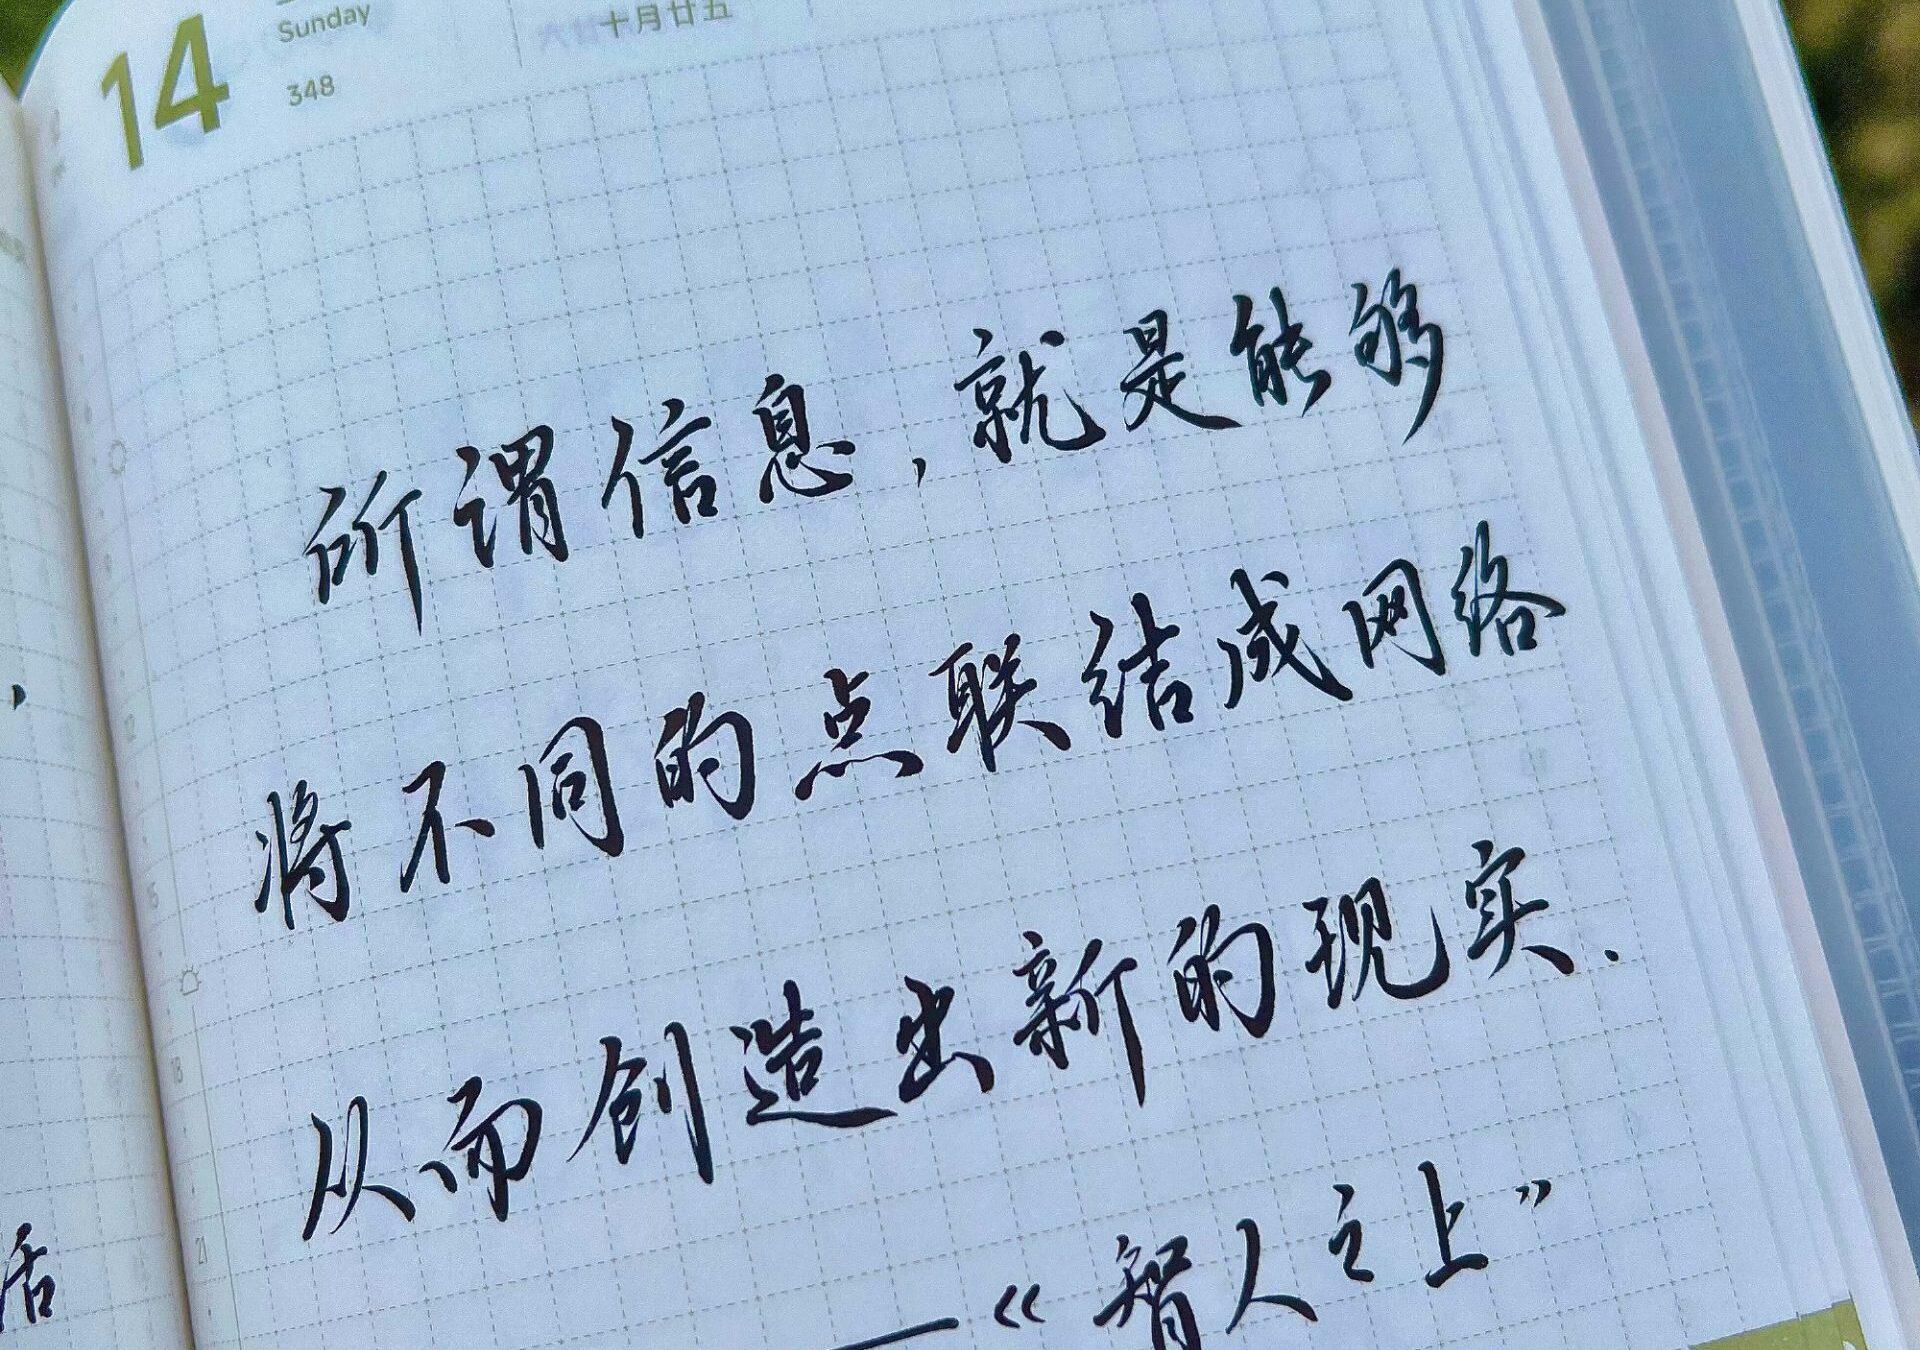 14
Sunday
348
十月廿五
所谓信息，就是能够
将不同的点联结成网络
从而创造出新的现实.
——《智人之上》
活
18
21